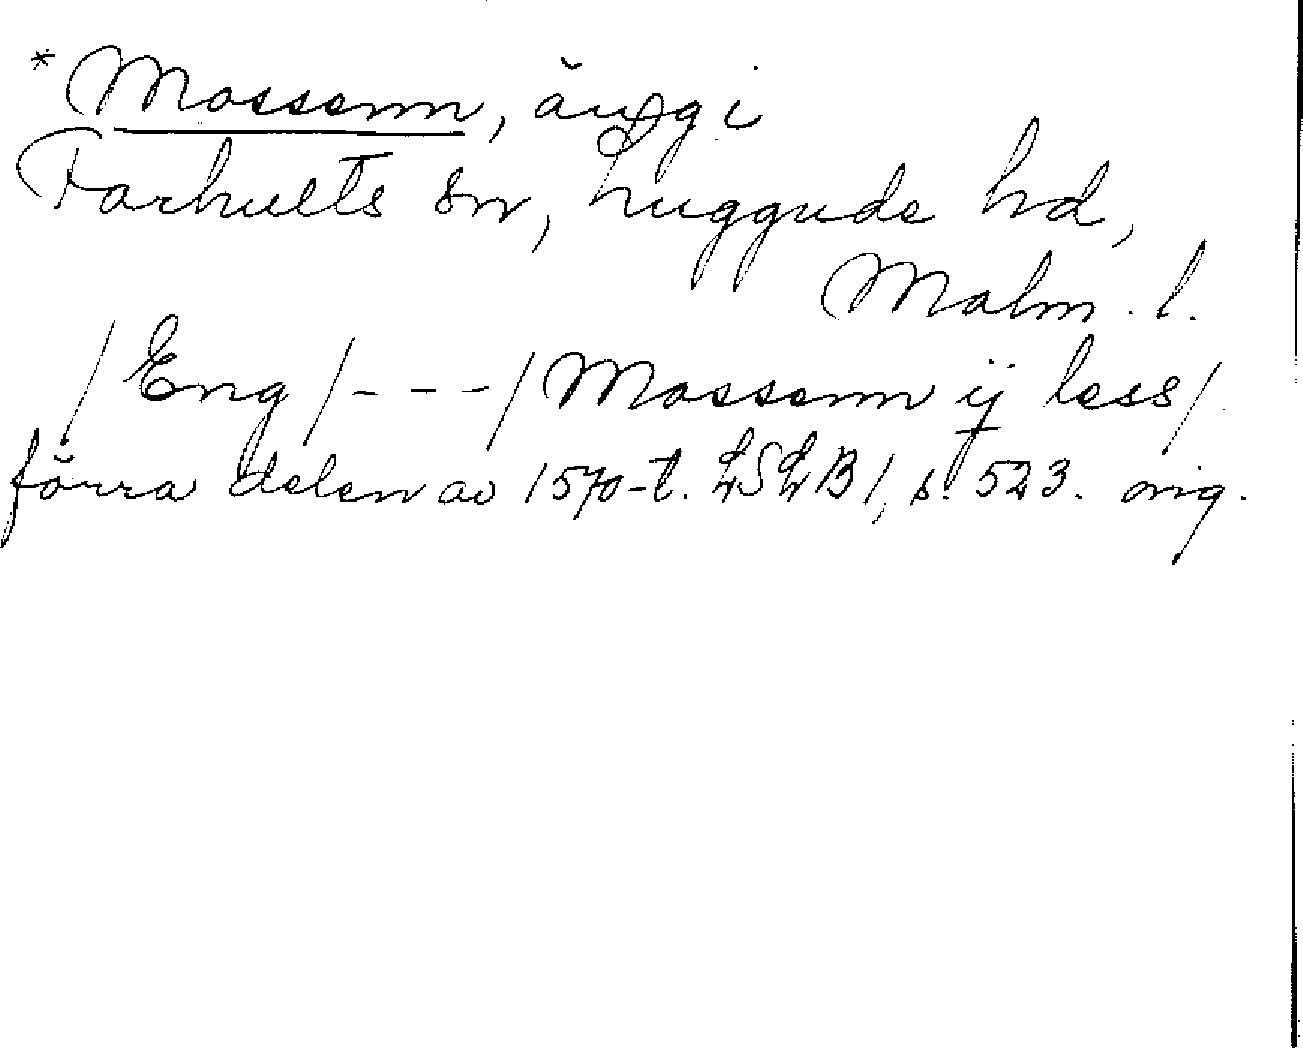 * Mossenn, äng i
Farhults sn, Luggude hd,
Malm. l.
/Eng/ - - - /Mossenn ij less/
förra delen av 1570-t. LSLB 1, s. 523. orig.